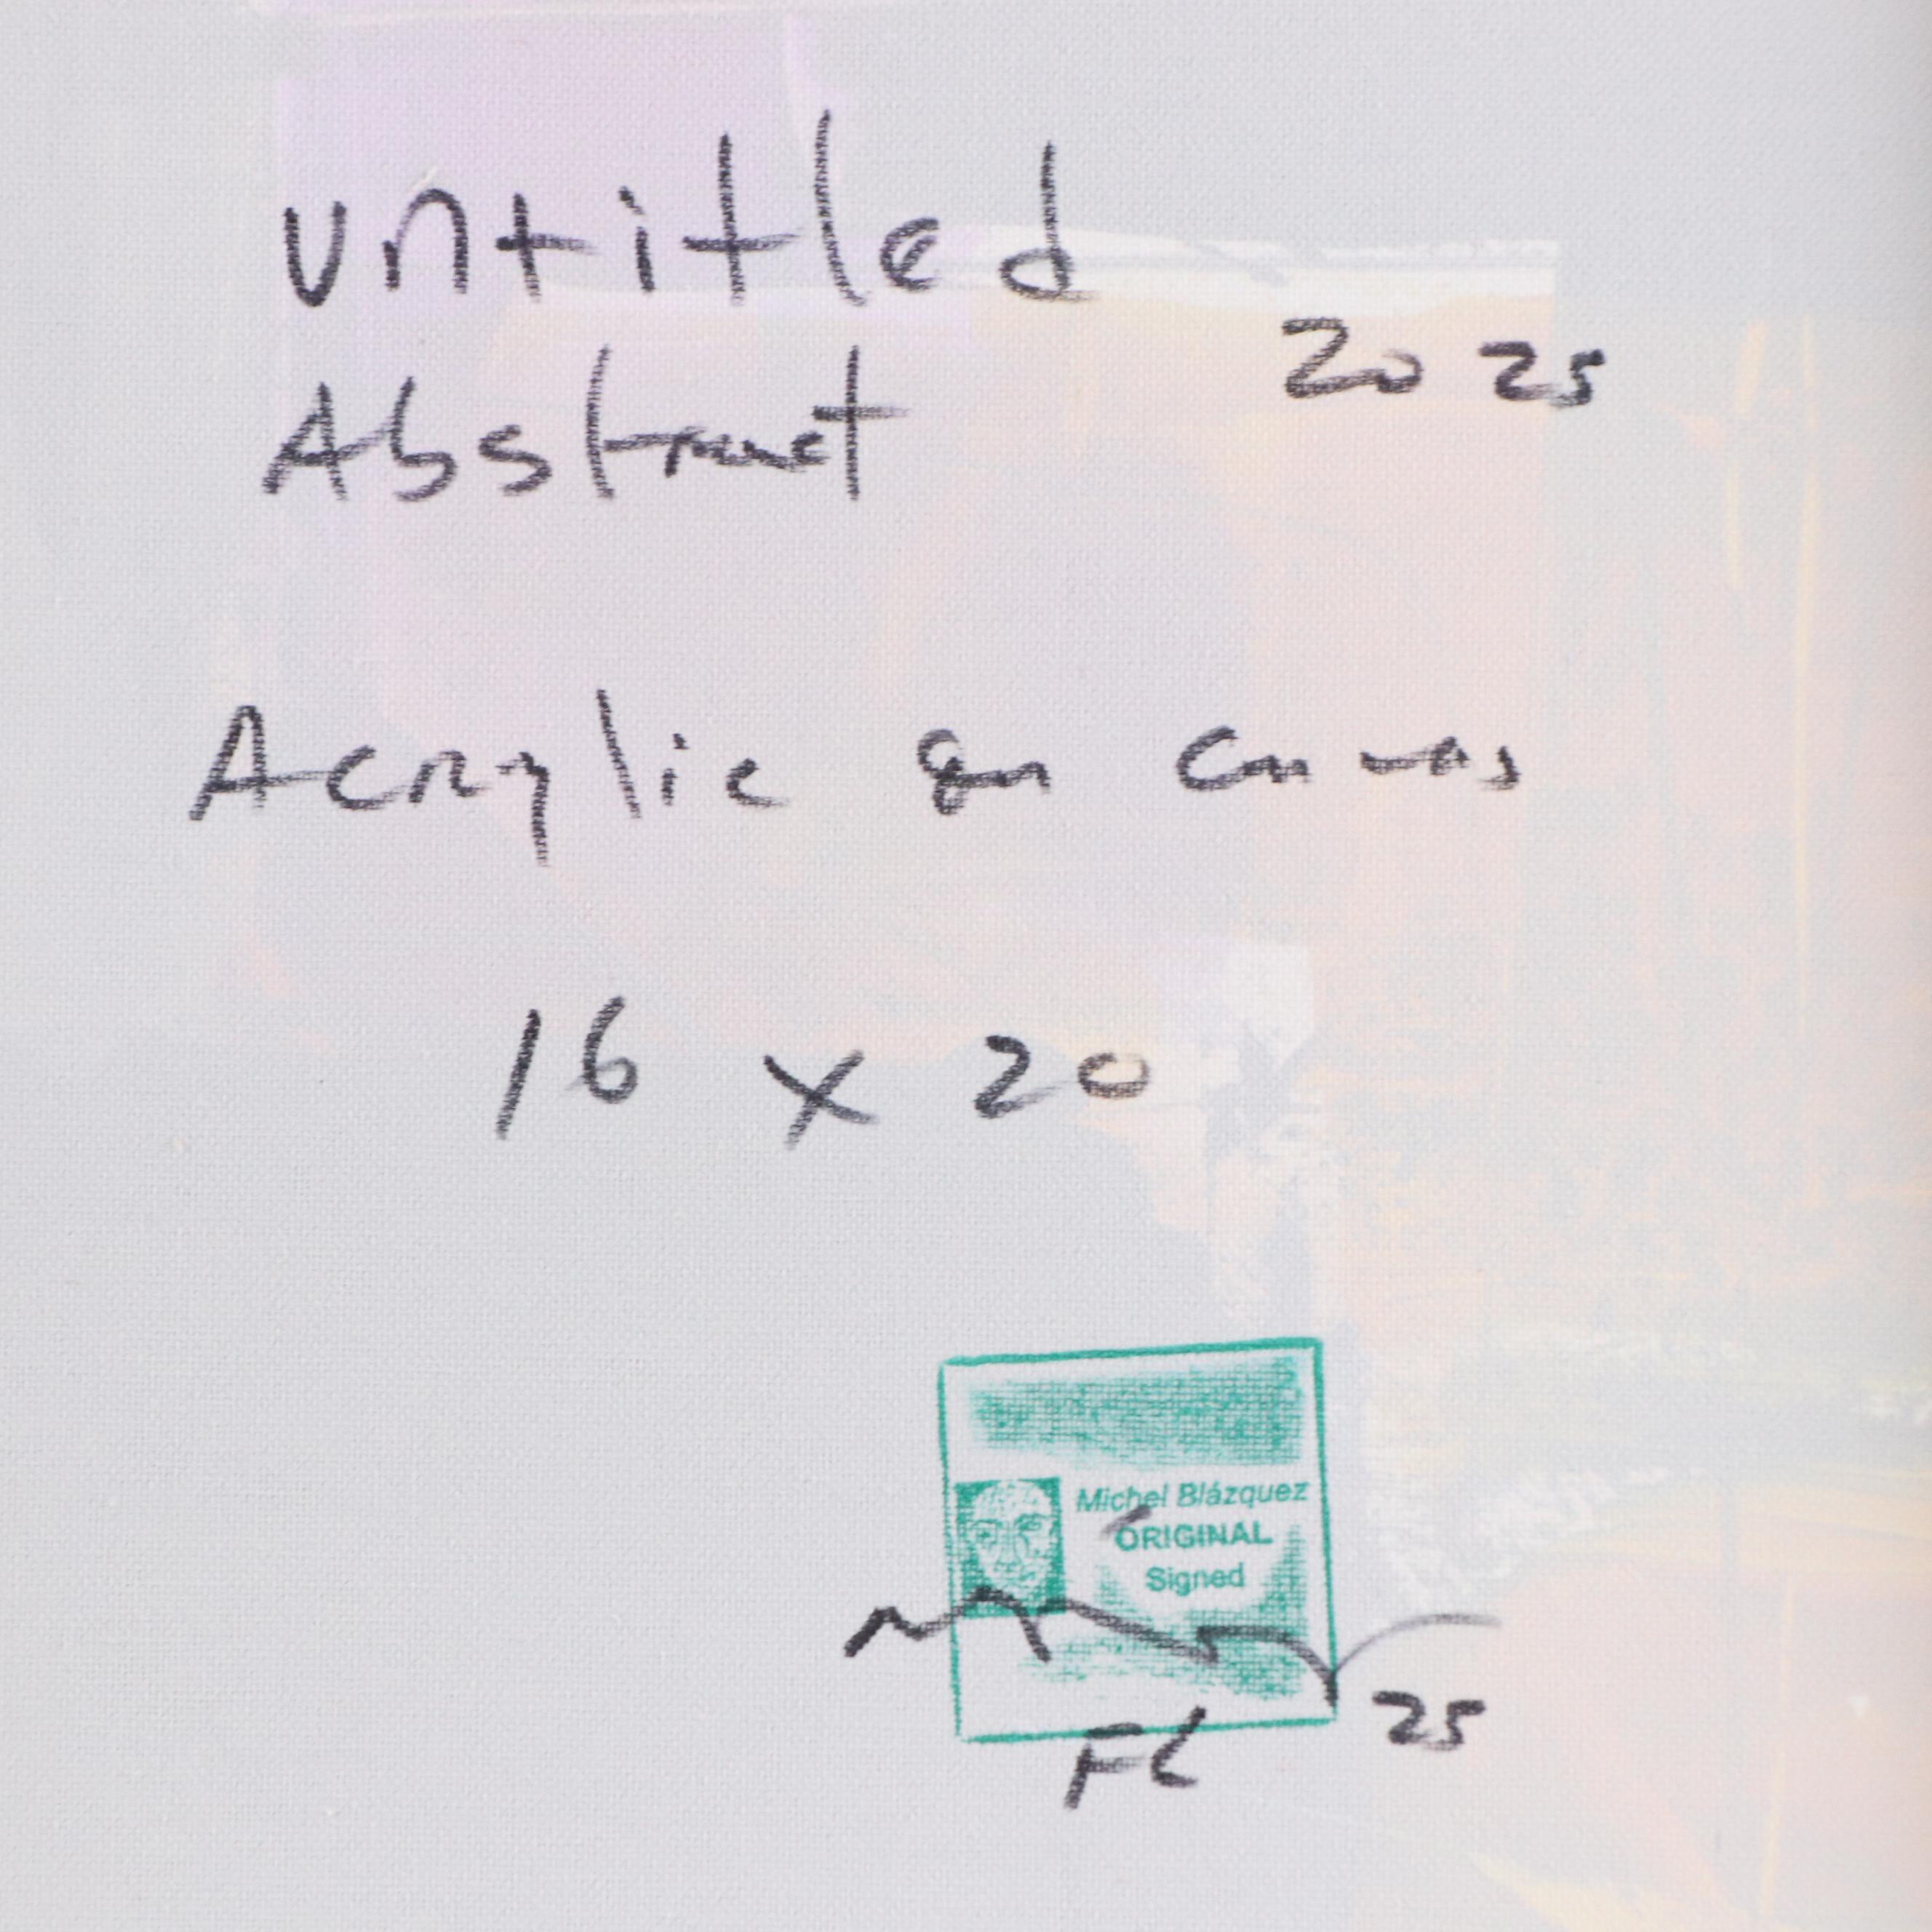 Untitled
2025
Abstract
Acrylic on Canvas
16 x 20
Michel Blázquez
ORIGINAL
Signed
25
FL